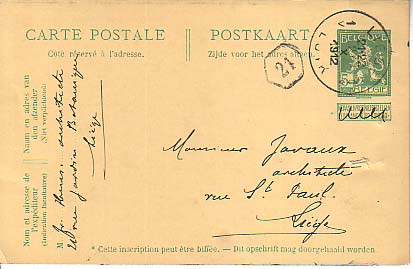 CARTE POSTALE
Côté réservé à l'adresse.
POSTKAART
Zijde voor het adres
24
LIÉGE
1912
BELGIQUE
5
BELGIË
Naam en adres van
den afzender
(Niet verplichtend)
Nom et adresse de
l'expéditeur
(Indication facultative)
M
architecte
rue Jardin Botanique
Liège
Monsieur Javaux
architecte
rue St Paul.
Liège
* Cette inscription peut être biffée. — Dit opschrift mag doorgehaald worden.